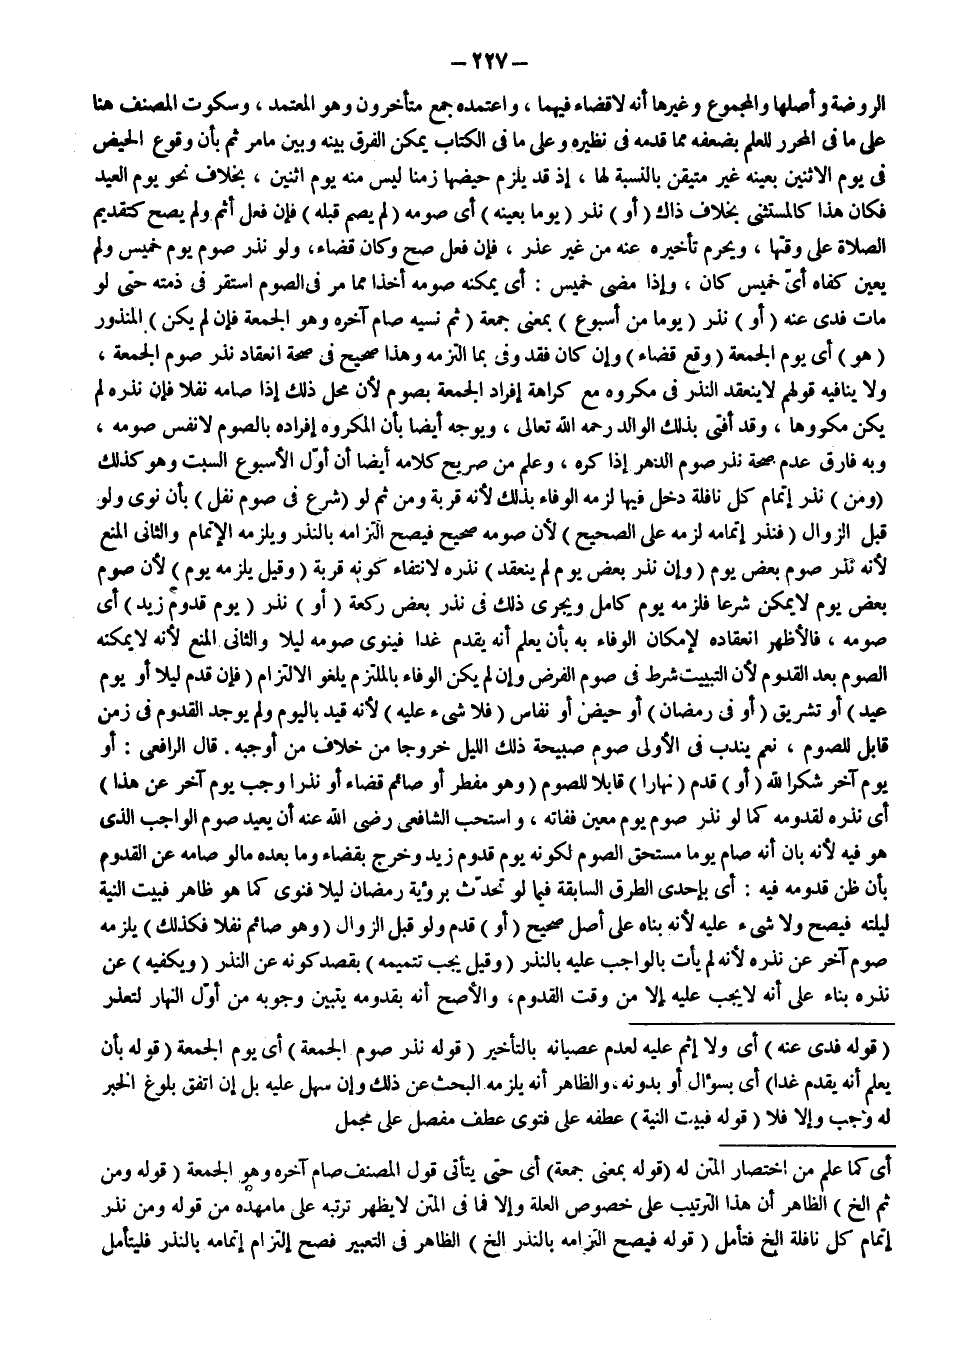 – ٢٢٧ –
الروضة وأصلها والمجموع وغيرها أنه لاقضاء فيهما ، واعتمده جمع متأخرون وهو المعتمد ، وسكوت المصنف هنا
على ما فى المحرر للعلم بضعفه مما قدمه فى نظيره وعلى ما فى الكتاب يمكن الفرق بينه وبين مامر ثم بأن وقوع الحيض
فى يوم الاثنين بعينه غير متيقن بالنسبة لها ، إذ قد يلزم حيضها زمنا ليس منه يوم اثنين ، بخلاف نحو يوم العيد
فكان هذا كالمستثنى بخلاف ذاك ( أو ) نذر ( يوما بعينه ) أى صومه ( لم يصم قبله ) فإن فعل أثم ولم يصح كتقديم
الصلاة على وقتها ، ويحرم تأخيره عنه من غير عذر ، فإن فعل صح وكان قضاء، ولو نذر صوم يوم خميس ولم
يعين كفاه أىّ خميس كان ، وإذا مضى خميس : أى يمكنه صومه أخذا مما مر فى الصوم استقر فى ذمته حتى لو
مات فدى عنه ( أو ) نذر ( يوما من أسبوع ) بمعنى جمعة ( ثم نسيه صام آخره وهو الجمعة فإن لم يكن ) المنذور
( هو ) أى يوم الجمعة ( وقع قضاء ) وإن كان فقد وفى بما التزمه وهذا صحيح فى صحة انعقاد نذر صوم الجمعة ،
ولا ينافيه قولهم لاينعقد النذر فى مكروه مع كراهة إفراد الجمعة بصوم لأن محل ذلك إذا صامه نفلا فإن نذره لم
يكن مكروها ، وقد أفتى بذلك الوالد رحمه الله تعالى ، ويوجه أيضا بأن المكروه إفراده بالصوم لانفس صومه ،
وبه فارق عدم صحة نذر صوم الدهر إذا كره ، وعلم من صريح كلامه أيضا أن أوّل الأسبوع السبت وهو كذلك
( ومن ) نذر إتمام كل نافلة دخل فيها لزمه الوفاء بذلك لأنه قربة ومن ثم لو ( شرع فى صوم نفل ) بأن نوى ولو
قبل الزوال ( فنذر إتمامه لزمه على الصحيح ) لأن صومه صحيح فيصح التزامه بالنذر ويلزمه الإتمام والثانى المنع
لأنه نذر صوم بعض يوم ( وإن نذر بعض يوم لم ينعقد ) نذره لانتفاء كونه قربة ( وقيل يلزمه يوم ) لأن صوم
بعض يوم لايمكن شرعا فلزمه يوم كامل ويجرى ذلك فى نذر بعض ركعة ( أو ) نذر ( يوم قدوم زيد ) أى
صومه ، فالأظهر انعقاده لإمكان الوفاء به بأن يعلم أنه يقدم غدا فينوى صومه ليلا والثانى المنع لأنه لايمكنه
الصوم بعد القدوم لأن التبييت شرط فى صوم الفرض وإن لم يكن الوفاء بالملتزم يلغو الالتزام ( فإن قدم ليلا أو يوم
عيد ) أو تشريق ( أو فى رمضان ) أو حيض أو نفاس ( فلا شىء عليه ) لأنه قيد باليوم ولم يوجد القدوم فى زمن
قابل للصوم ، نعم يندب فى الأولى صوم صبيحة ذلك الليل خروجا من خلاف من أوجبه . قال الرافعى : أو
يوم آخر شكرا لله ( أو ) قدم ( نهارا ) قابلا للصوم ( وهو مفطر أو صائم قضاء أو نذرا وجب يوم آخر عن هذا )
أى نذره لقدومه كما لو نذر صوم يوم معين ففاته ، واستحب الشافعى رضى الله عنه أن يعيد صوم الواجب الذى
هو فيه لأنه بان أنه صام يوما مستحق الصوم لكونه يوم قدوم زيد وخرج بقضاء وما بعده مالو صامه عن القدوم
بأن ظن قدومه فيه : أى بإحدى الطرق السابقة فيما لو تحدّث برؤية رمضان ليلا فنوى كما هو ظاهر فبيت النية
ليلته فيصح ولا شىء عليه لأنه بناه على أصل صحيح ( أو ) قدم ولو قبل الزوال ( وهو صائم نفلا فكذلك ) يلزمه
صوم آخر عن نذره لأنه لم يأت بالواجب عليه بالنذر ( وقيل يجب تتميمه ) بقصد كونه عن النذر ( ويكفيه ) عن
نذره بناء على أنه لايجب عليه إلا من وقت القدوم، والأصح أنه بقدومه يتبين وجوبه من أوّل النهار لتعذر
( قوله فدى عنه ) أى ولا إثم عليه لعدم عصيانه بالتأخير ( قوله نذر صوم الجمعة ) أى يوم الجمعة ( قوله بأن
يعلم أنه يقدم غدا ) أى بسؤال أو بدونه، والظاهر أنه يلزمه البحث عن ذلك وإن سهل عليه بل إن اتفق بلوغ الخبر
له وجب وإلا فلا ( قوله فبيت النية ) عطفه على فنوى عطف مفصل على مجمل
أى كما علم من اختصار المتن له ( قوله بمعنى جمعة ) أى حتى يتأتى قول المصنف صام آخره وهو الجمعة ( قوله ومن
ثم الخ ) الظاهر أن هذا الترتيب على خصوص العلة وإلا فما فى المتن لايظهر ترتبه على مامهده من قوله ومن نذر
إتمام كل نافلة الخ فتأمل ( قوله فيصح التزامه بالنذر الخ ) الظاهر فى التعبير فصح إلتزام إتمامه بالنذر فليتأمل